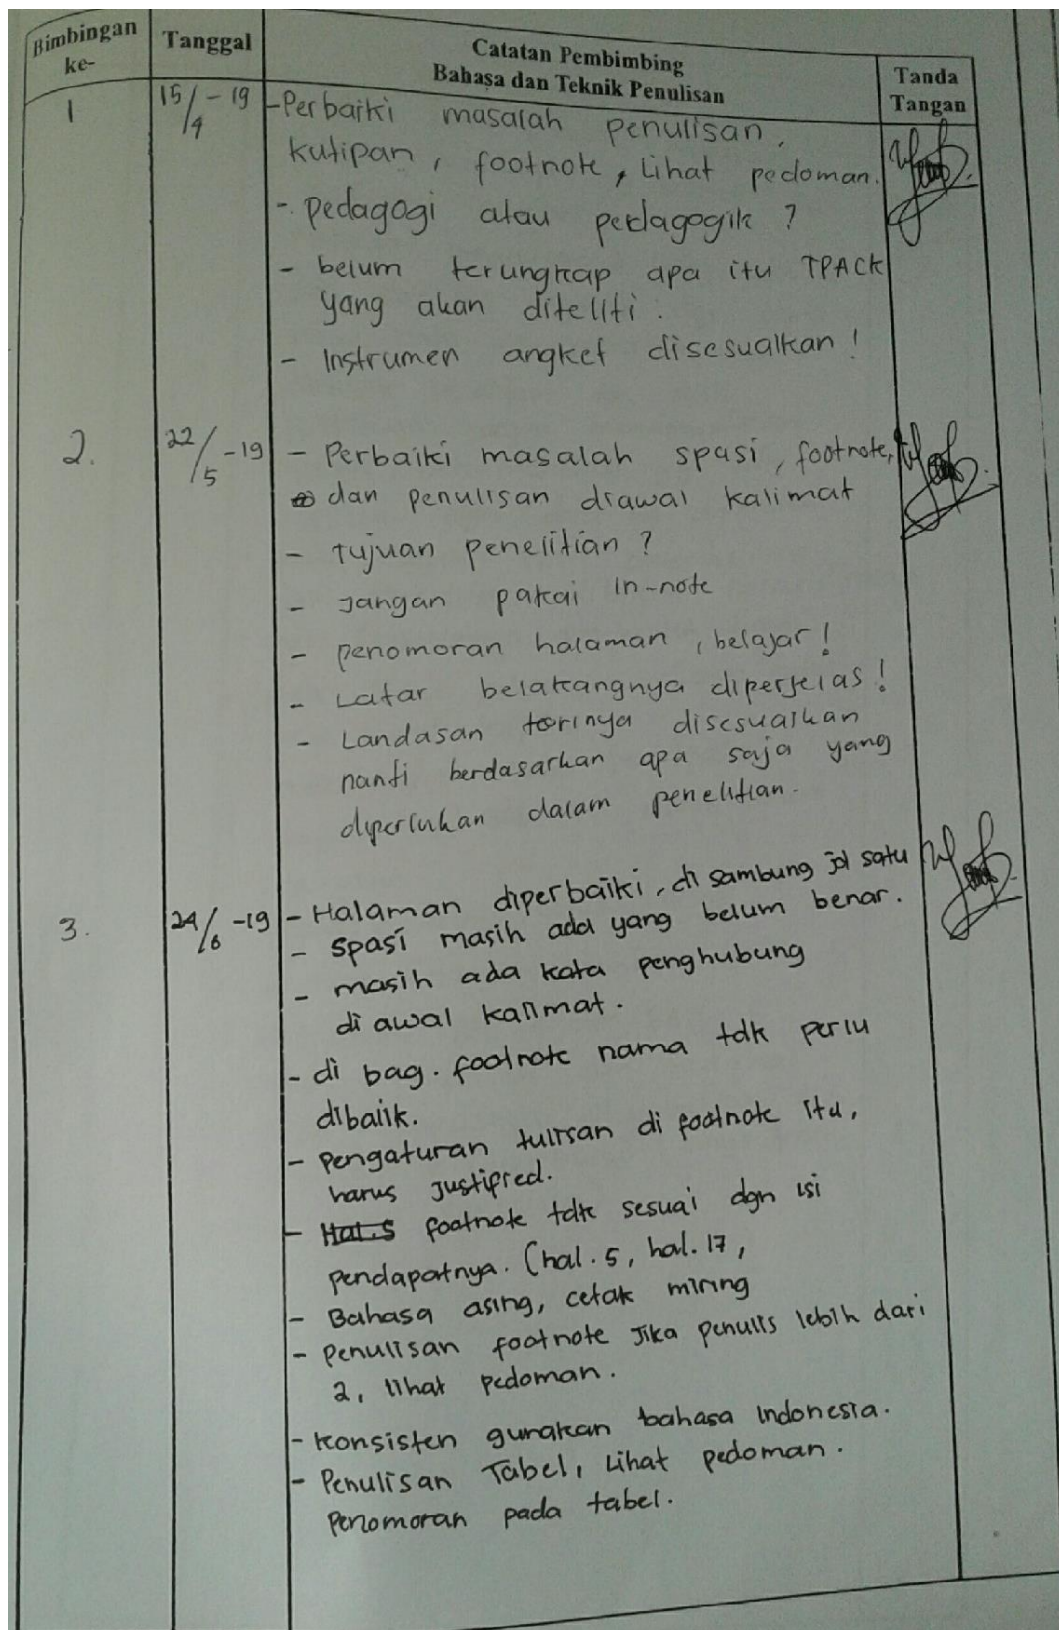 Bimbingan ke- Tanggal Catatan Pembimbing Bahasa dan Teknik Penulisan Tanda Tangan
1 15/4 -19 - Perbaiki masalah penulisan,
kutipan, footnote, Lihat pedoman.
- pedagogi atau pedagogik ?
- belum terungkap apa itu TPACK
yang akan diteliti.
- Instrumen angket disesuaikan !
2. 22/5 -19 - Perbaiki masalah spasi, footnote,
dan penulisan diawal kalimat
- Tujuan penelitian ?
- Jangan pakai in-note
- penomoran halaman, belajar !
- Latar belakangnya diperjelas !
- Landasan teorinya disesuaikan
nanti berdasarkan apa saja yang
diperlukan dalam penelitian.
3. 24/6 -19 - Halaman diperbaiki, di sambung jd satu
- Spasi masih ada yang belum benar.
- masih ada kata penghubung
di awal kalimat.
- di bag. footnote nama tdk perlu
dibalik.
- Pengaturan tulisan di footnote itu,
harus justified.
- Hal.5 footnote tdk sesuai dgn isi
pendapatnya. (hal. 5, hal. 17,
- Bahasa asing, cetak miring
- penulisan footnote Jika penulis lebih dari
2, lihat pedoman.
- Konsisten gunakan bahasa Indonesia.
- Penulisan Tabel, Lihat pedoman.
Penomoran pada tabel.